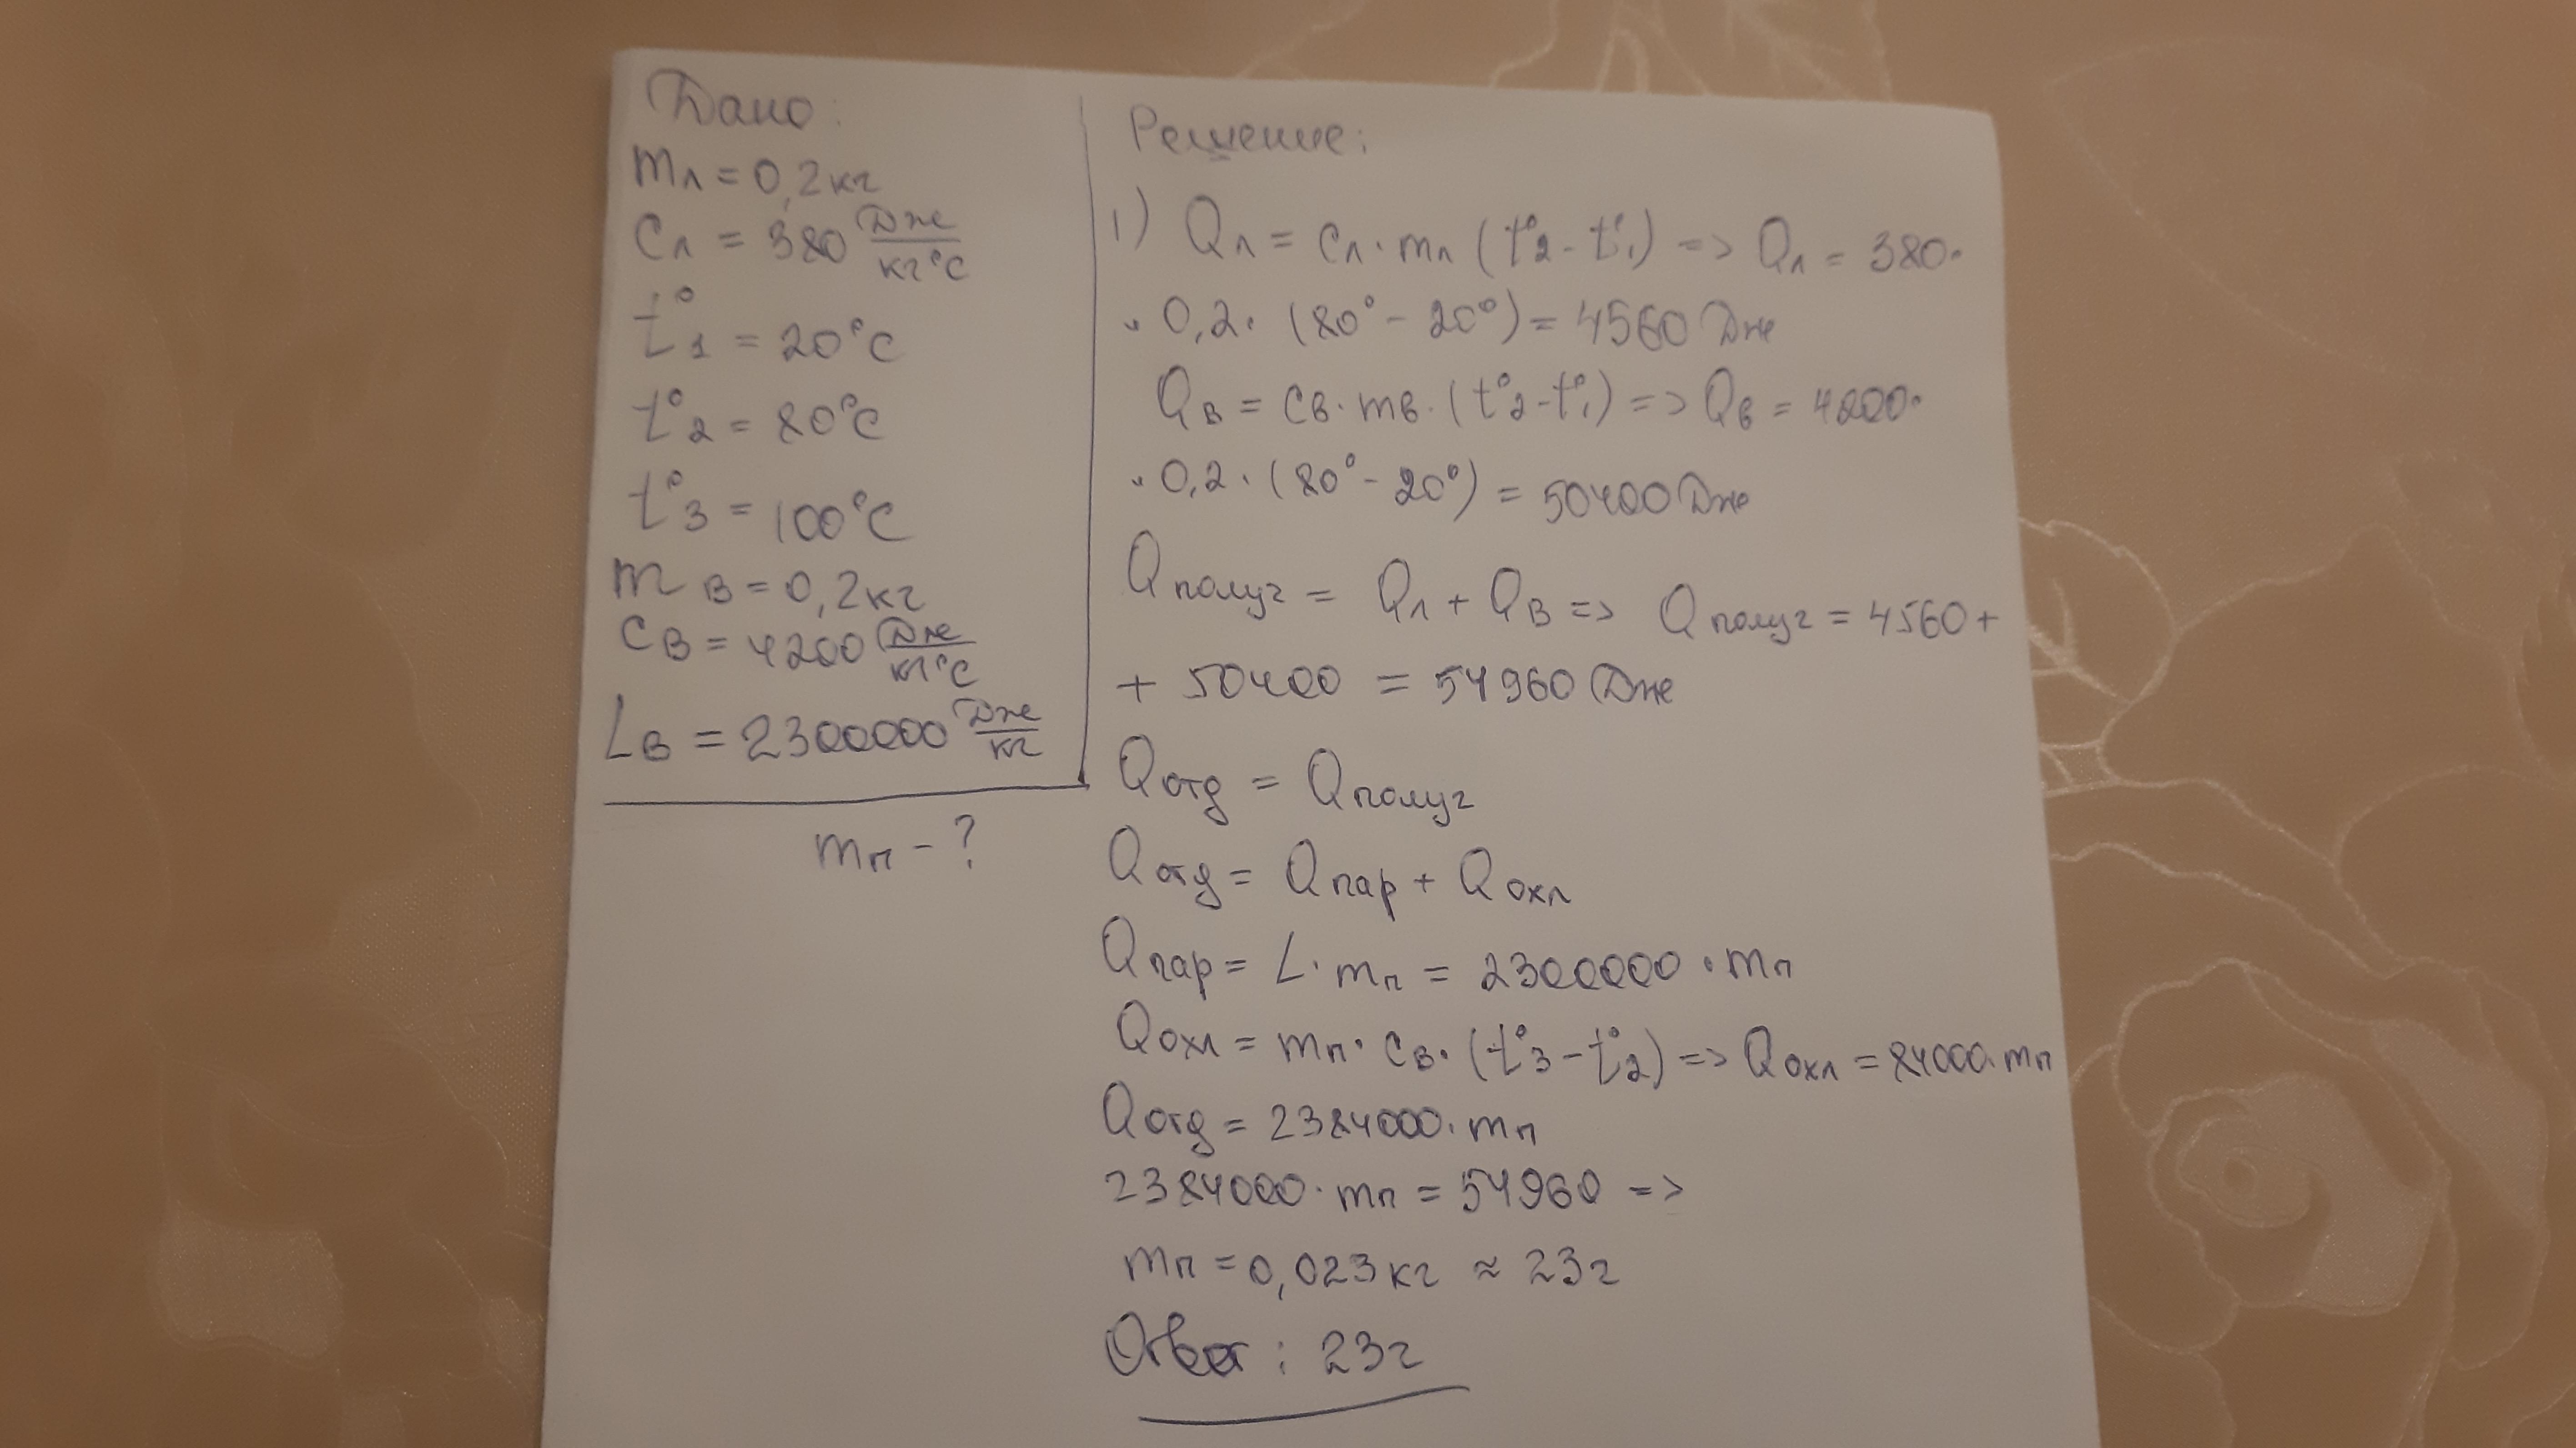 Дано:
mл = 0,2кг
Cл = 380 Дж/кг°C
t°1 = 20°C
t°2 = 80°C
t°3 = 100°C
mв = 0,2кг
Cв = 4200 Дж/кг°C
Lв = 2300000 Дж/кг
mп - ?
Решение:
1) Qл = cл · mл (t°2 - t°1) => Qл = 380·
· 0,2 · (80° - 20°) = 4560 Дж
Qв = cв · mв · (t°2 - t°1) => Qв = 4200·
· 0,2 · (80° - 20°) = 50400 Дж
Qполуч = Qл + Qв => Qполуч = 4560 +
+ 50400 = 54960 Дж
Qотд = Qполуч
Qотд = Qпар + Qохл
Qпар = L · mп = 2300000 · mп
Qохл = mп · cв · (t°3 - t°2) => Qохл = 84000 · mп
Qотд = 2384000 · mп
2384000 · mп = 54960 =>
mп = 0,023кг ≈ 23г
Ответ : 23г